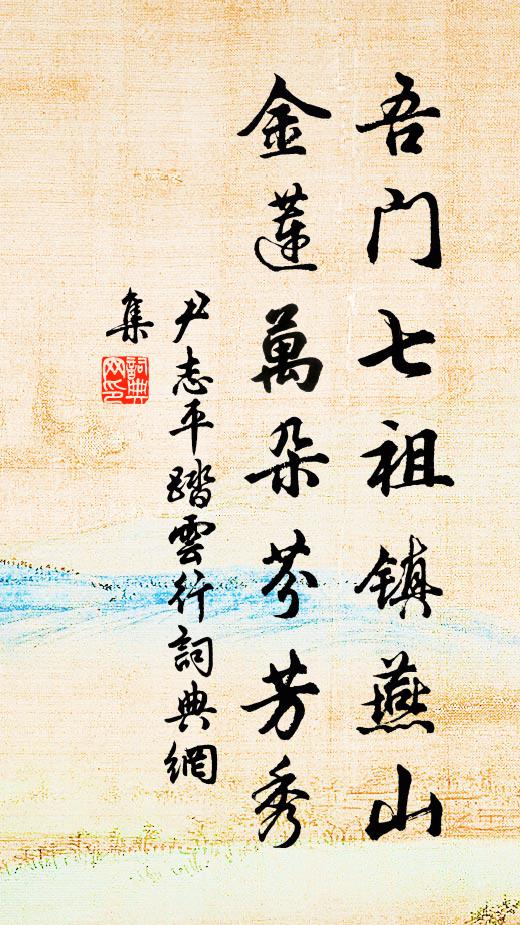 吾门七祖镇燕山
金莲萬朵芬芳秀
尹志平踏雲行詞典網
集
詞典网印